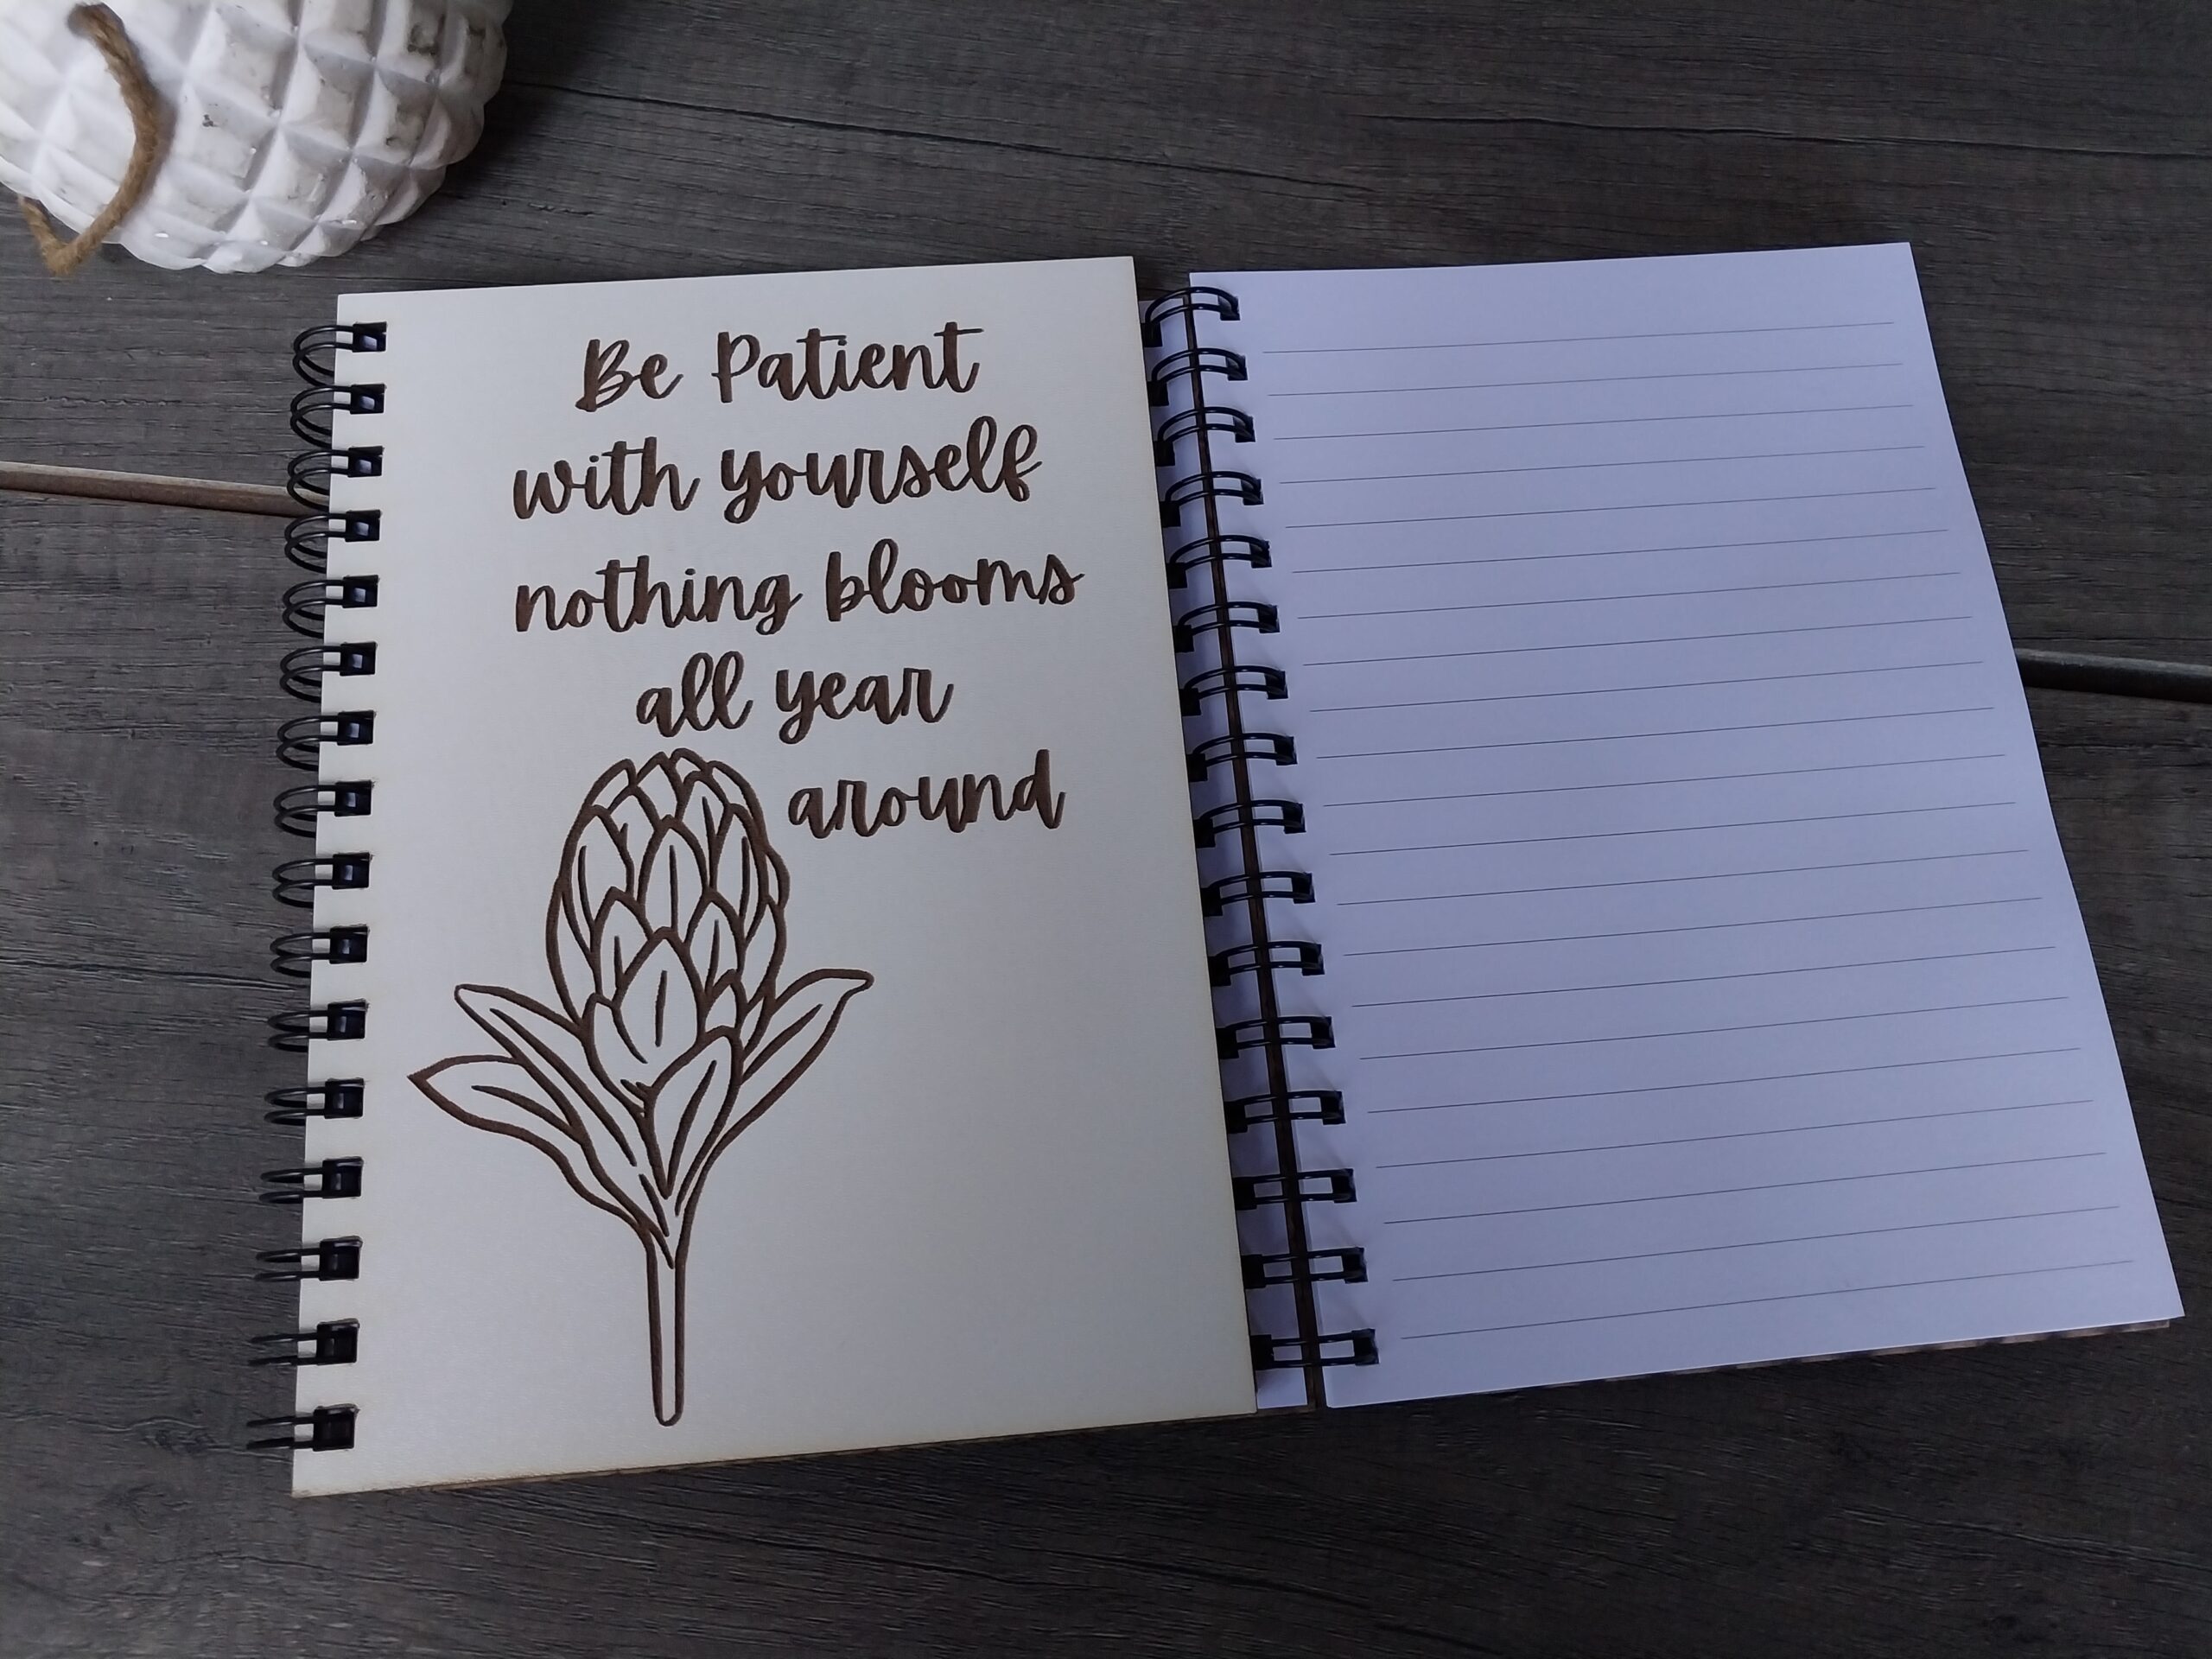 Be Patient
with yourself
nothing blooms
all year
around